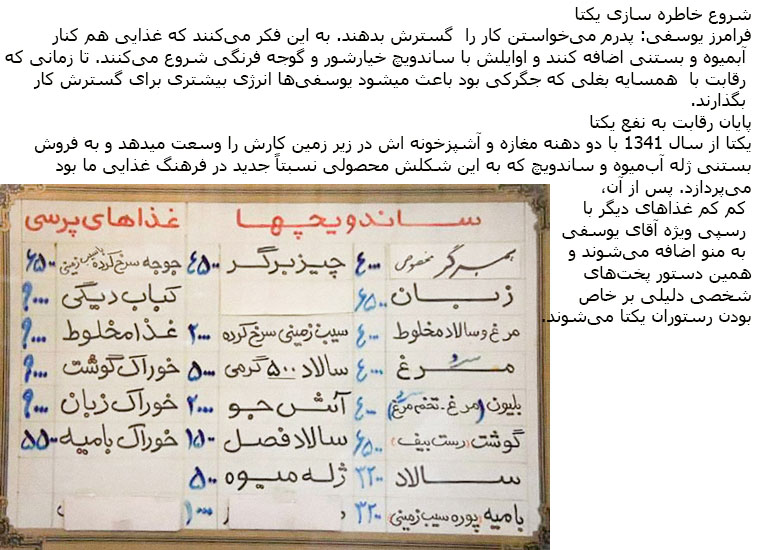 شروع خاطره سازی یکتا
فرامرز یوسفی: پدرم می‌خواستن کار را  گسترش بدهند. به این فکر می‌کنند که غذایی هم کنار
آبمیوه و بستنی اضافه کنند و اوایلش با ساندویچ خیارشور و گوجه فرنگی شروع می‌کنند. تا زمانی که
رقابت با  همسایه بغلی که جگرکی بود باعث میشود یوسفی‌ها انرژی بیشتری برای گسترش کار
بگذارند.
پایان رقابت به نفع یکتا
یکتا از سال 1341 با دو دهنه مغازه و آشپزخونه اش در زیر زمین کارش را وسعت میدهد و به فروش
بستنی ژله آب‌میوه و ساندویچ که به این شکلش محصولی نسبتاً جدید در فرهنگ غذایی ما بود
می‌پردازد. پس از آن،
کم کم غذاهای دیگر با
رسپی ویژه آقای یوسفی
به منو اضافه می‌شوند و
همین دستور پخت‌های
شخصی دلیلی بر خاص
بودن رستوران یکتا می‌شوند.
ساندویچها
همبرگر مخصوص ۴۰۰۰
زبان ۶۵۰۰
مرغ و سالاد مخلوط ۴۰۰۰
مرغ ۴۰۰۰
بلیون (مرغ - تخم مرغ) ۴۰۰۰
گوشت (رست بیف) ۶۵۰۰
سالاد ۳۲۰۰
بامیه (پوره سیب زمینی) ۳۲۰۰
چیزبرگر ۴۵۰۰
سیب زمینی سرخ کرده ۲۰۰۰
سالاد ۵۰۰ گرمی ۵۰۰۰
آش جو ۲۰۰۰
سالاد فصل ۱۵۰۰
ژله میوه ۵۰۰
غذاهای پرسی
جوجه سرخ کرده باسیب زمینی ۶۵۰۰
کباب دیگی ۹۰۰۰
غذا مخلوط ۹۰۰۰
خوراک گوشت ۹۰۰۰
خوراک زبان ۹۰۰۰
خوراک بامیه ۵۵۰۰